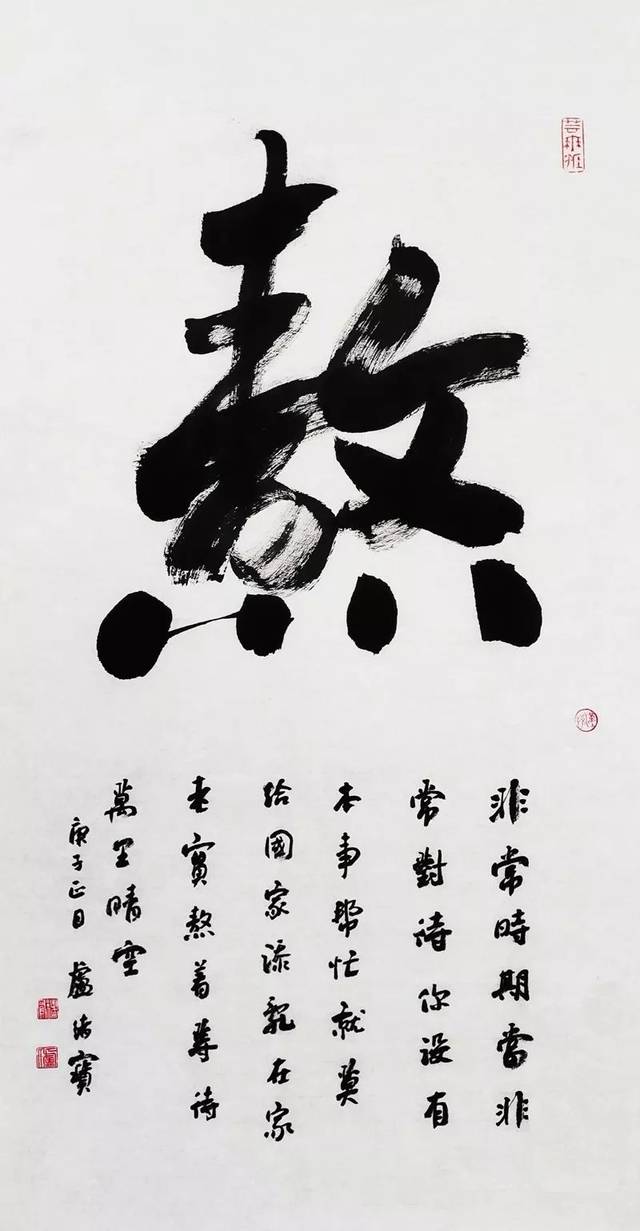 熬
非常時期當非
常對待你没有
本事幫忙就莫
給國家添亂在家
老實熬着等待
萬里晴空
庚子正月 盧 寶